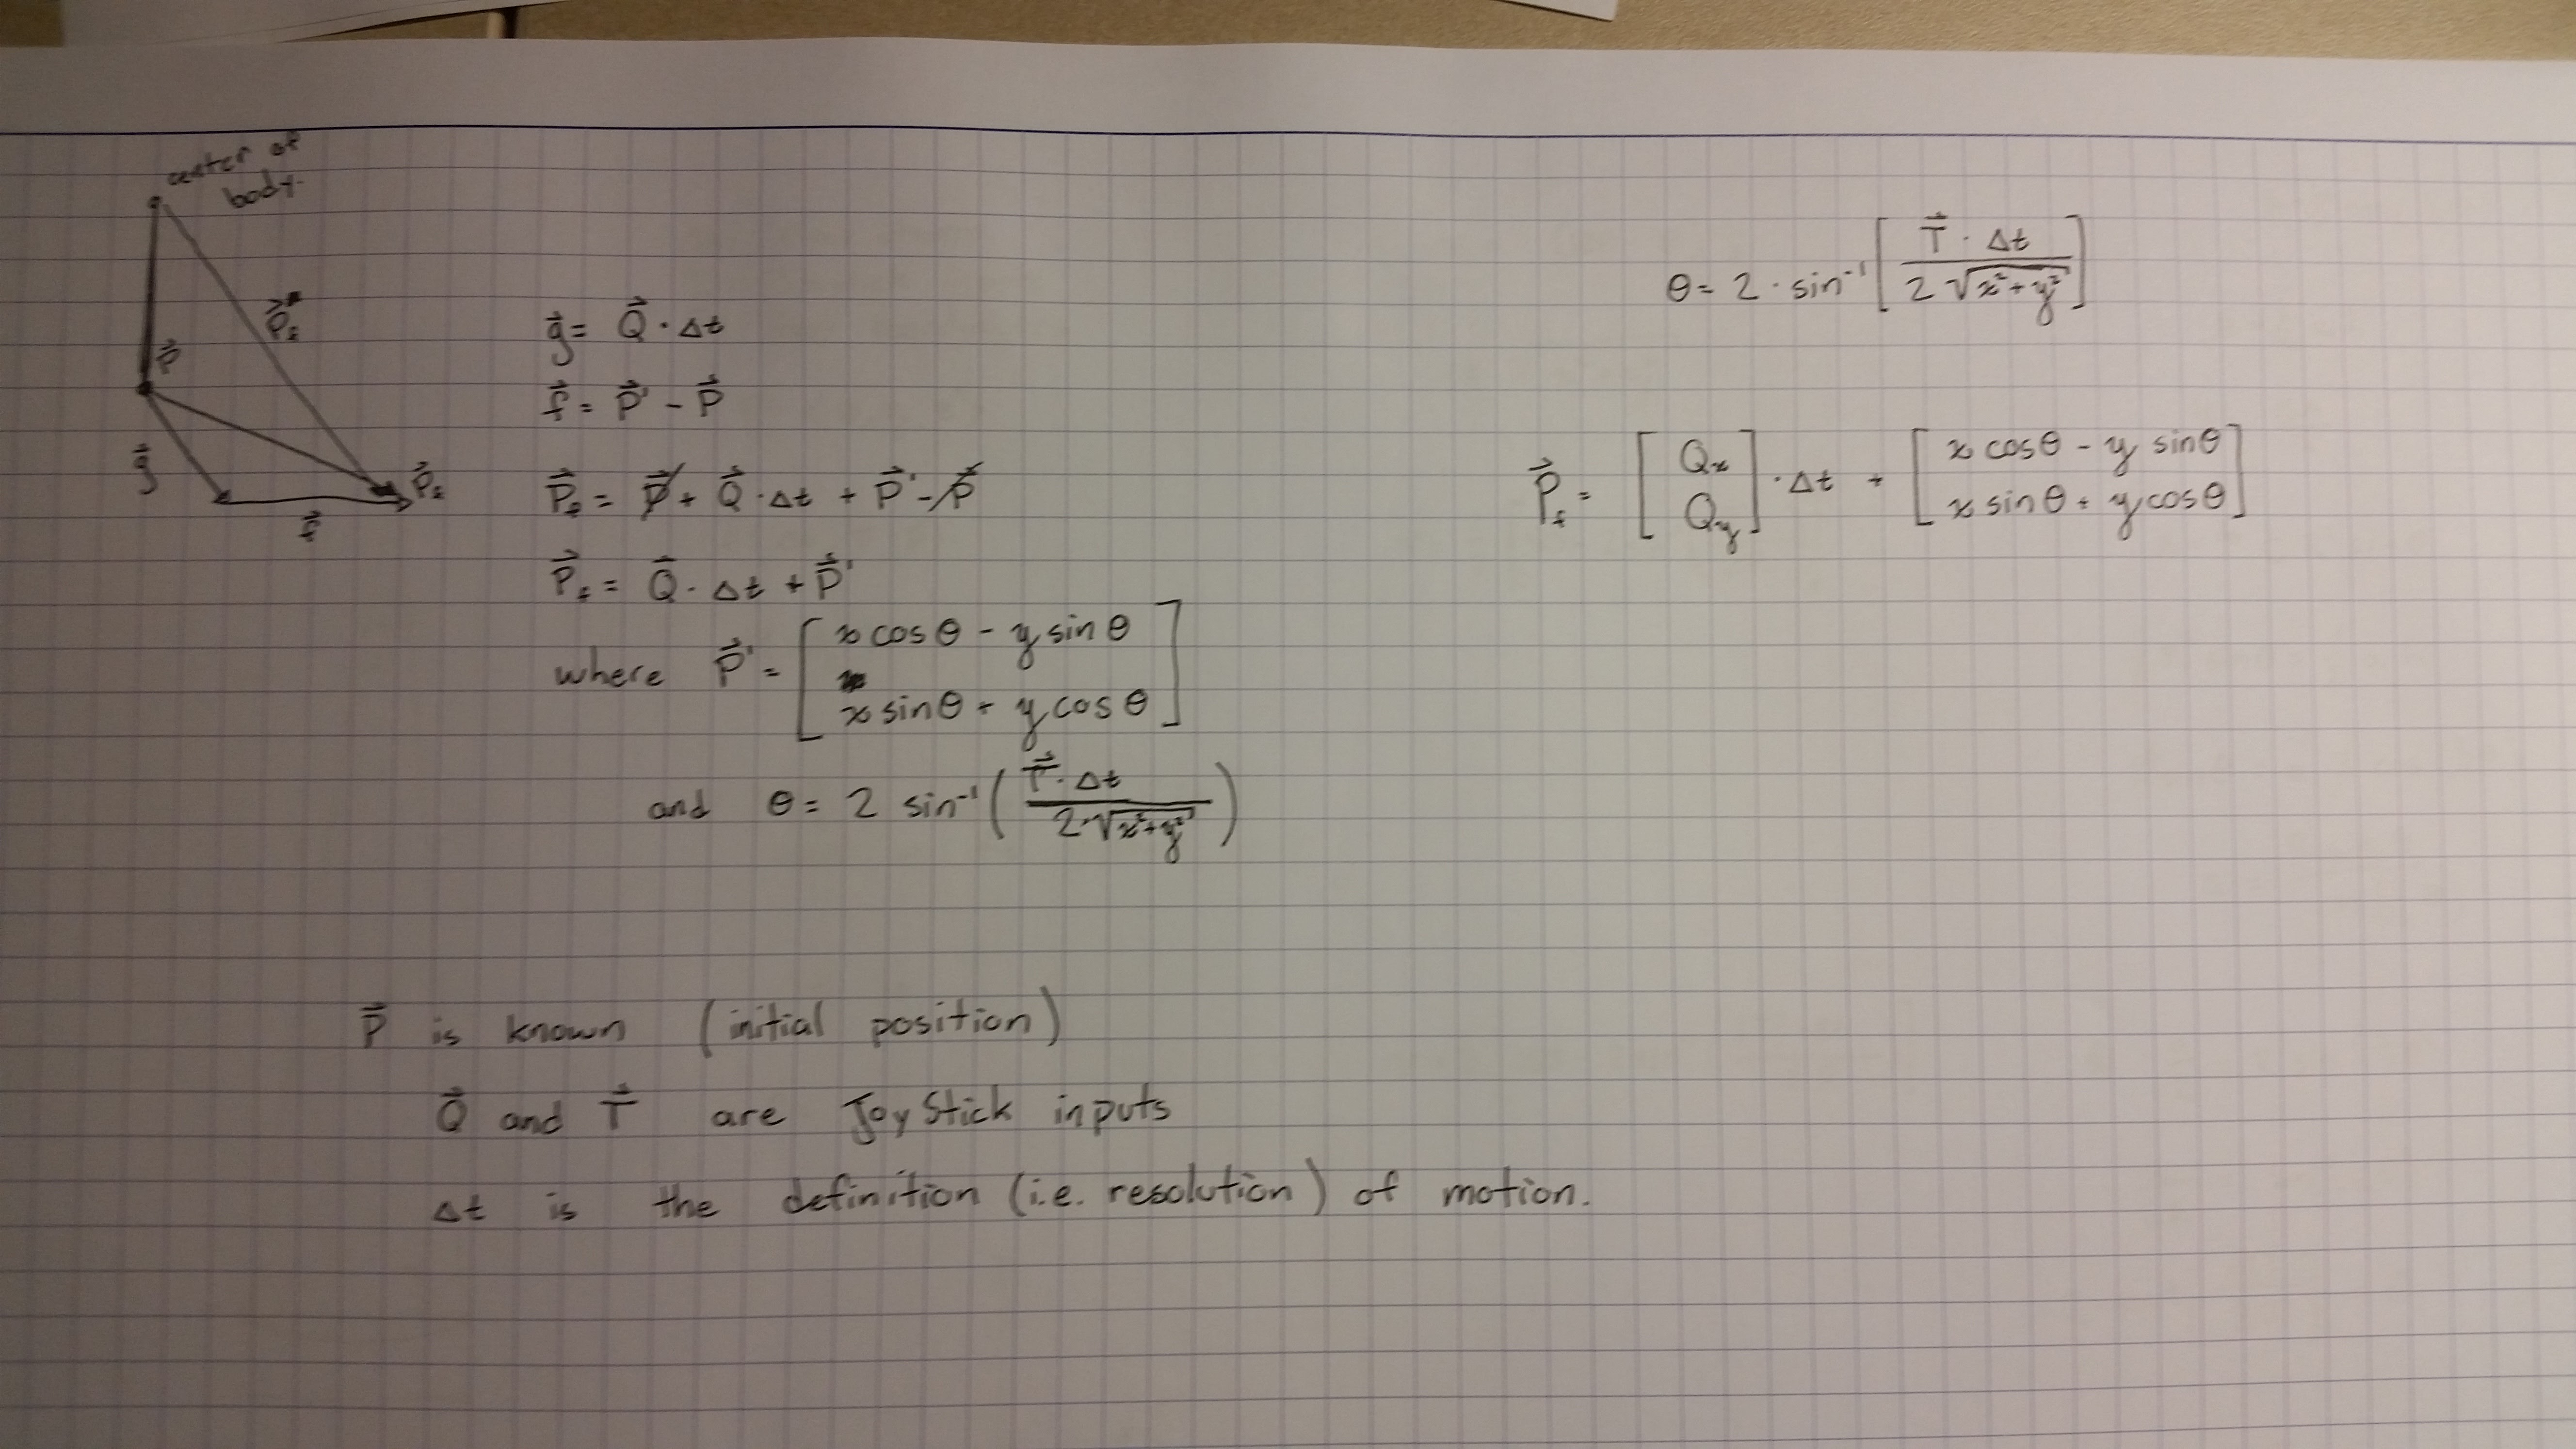 center of
body.
p⃗
P⃗f
g⃗
r⃗
P⃗f
g⃗ = Q⃗ · Δt
r⃗ = p⃗' - p⃗
P⃗f = p⃗ + Q⃗ · Δt + p⃗' - p⃗
P⃗f = Q⃗ · Δt + p⃗'
where p⃗' = [ x cosθ - y sinθ
x sinθ + y cosθ ]
and θ = 2 sin⁻¹ ( T⃗ · Δt / 2√x²+y² )
P⃗ is known (initial position)
Q⃗ and T⃗ are Joy Stick inputs
Δt is the definition (i.e. resolution) of motion.
θ = 2 · sin⁻¹ [ T⃗ · Δt / 2√x²+y² ]
P⃗f = [ Qx
Qy ] · Δt + [ x cosθ - y sinθ
x sinθ + y cosθ ]